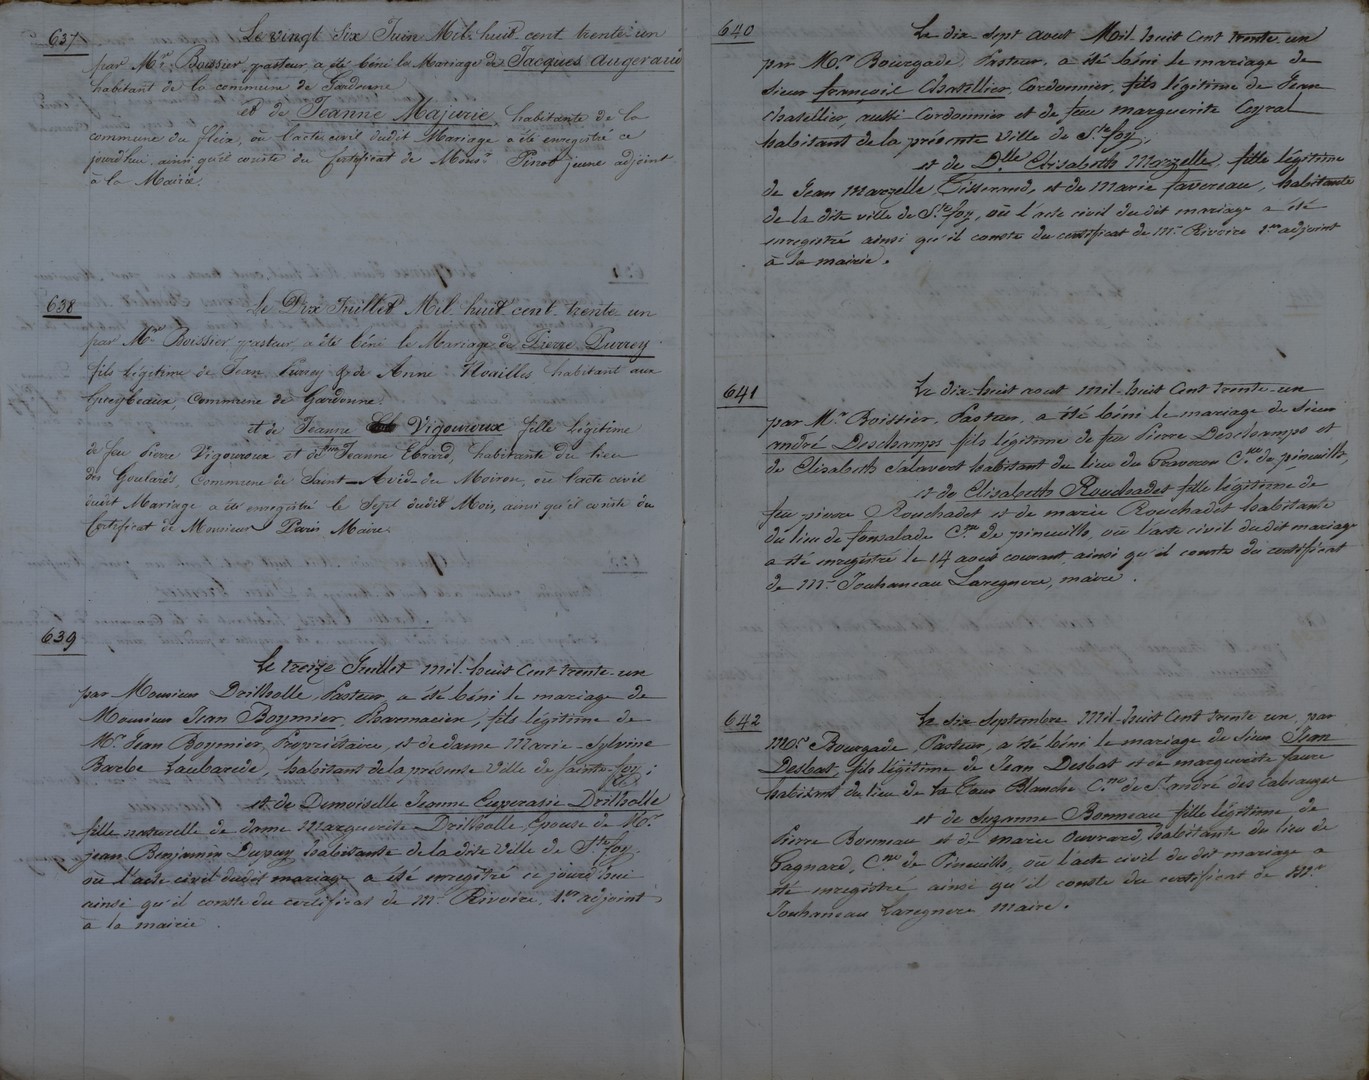 637
Le vingt Six Juin Mil huit cent trente un
par Mr. Boissier pasteur, a été béni le Mariage de Jacques Augeraud
habitant de la commune de Gardonne
et de Jeanne Majorie, habitante de la
commune du fleix, où l'acte civil dudit Mariage a été enregistré ce
jourd'hui ainsi qu'il conste du certificat de Monsr. Pinot jeune adjoint
à la Mairie.
638
Le Dix Juillet Mil huit cent trente un
par Mr. Boissier pasteur, a été béni le Mariage de Pierre Purrey
fils légitime de Jean Purrey & de Anne Noailles, habitant aux
Commune de Gardonne.
et de Jeanne Vigouroux fille légitime
de feu Pierre Vigouroux et de Jeanne Ebrard, habitante du lieu
des Goulards, Commune de Saint-Avid-du Moiron, où l'acte civil
dudit Mariage a été enregistré le Sept dudit Mois, ainsi qu'il conste du
Certificat de Monsieur Paris Maire.
639
Le treize Juillet mil-huit Cent trente-un
par Monsieur Drilholle, Pasteur, a été béni le mariage de
Monsieur Jean Boymier, Pharmacien, fils légitime de
Mr. Jean Boymier, Propriétaire, et de dame Marie-Sylvine
Barbe Laubarede, habitant de la présente Ville de Sainte-foy;
et de Demoiselle Jeanne Euperasie Drilholle
fille naturelle de dame Marguerite Drilholle, Epouse de Mr.
jean Benjamin Dupuy, habitante de la dite Ville de Ste. foy.
où l'acte civil dudit mariage a été enregistré ce jourd'hui
ainsi qu'il conste du certificat de Mr. Rivoire, 1er adjoint
à la mairie.
640
Le dix-Sept aout Mil-huit Cent trente-un
par Mr. Bourgade, Pasteur, a été béni le mariage de
Sieur françois Chatellier, Cordonnier, fils légitime de Jean
Chatellier, aussi Cordonnier et de feu marguerite Ceyral
habitant de la présente Ville de Ste. foy,
et de Dlle Elisabeth Marzelle, fille légitime
de Jean Marzelle Tisserand, et de Marie favereau, habitante
de la dite ville de Ste. foy, où l'acte civil du dit mariage a été
enregistré ainsi qu'il conste du certificat de Mr. Rivoire 1er adjoint
à la mairie.
641
Le dix-huit aout mil-huit Cent trente-un
par Mr. Boissier, Pasteur, a été béni le mariage de Sieur
andré Deschamps fils légitime de feu Pierre Deschamps et
de Elisabeth Salavert habitant du lieu du Cne. de pineuilh,
et de Elisabeth Rouchadet fille légitime de
feu pierre Rouchadet et de marie Rouchadet habitante
du lieu de fonsalade Cne. de pineuilh, où l'acte civil du dit mariage
a été enregistré le 14 août courant, ainsi qu'il conste du certificat
de Mr. Jouhaneau Laregnere, maire.
642
Le dix Septembre Mil-huit Cent trente un, par
Mr. Bourgade, Pasteur, a été béni le mariage de Sieur Jean
Desbat, fils légitime de Jean Desbat et de marguerite faure
habitant du lieu de la Tour Blanche Cne. de St. andré des Cabauzes
et de Suzanne Bonneau fille légitime de
Pierre Bonneau et de marie Ouvrard, habitante du lieu de
Pagnard, Cne. de Pineuilh, où l'acte civil du dit mariage a
été enregistré ainsi qu'il conste du certificat de Mr.
Jouhaneau Laregnere, maire.